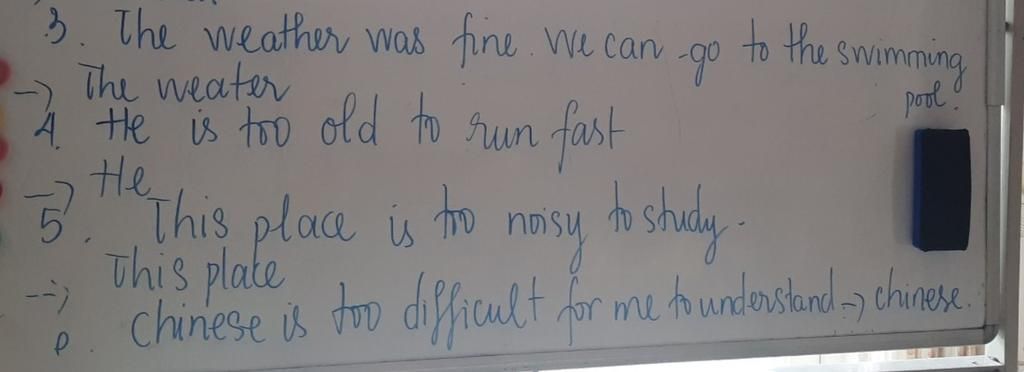 3. The weather was fine. We can go to the swimming
pool.
-> The weater
4. He is too old to run fast
-> He
5. This place is too noisy to study.
-> This place
chinese is too difficult for me to understand -> chinese.